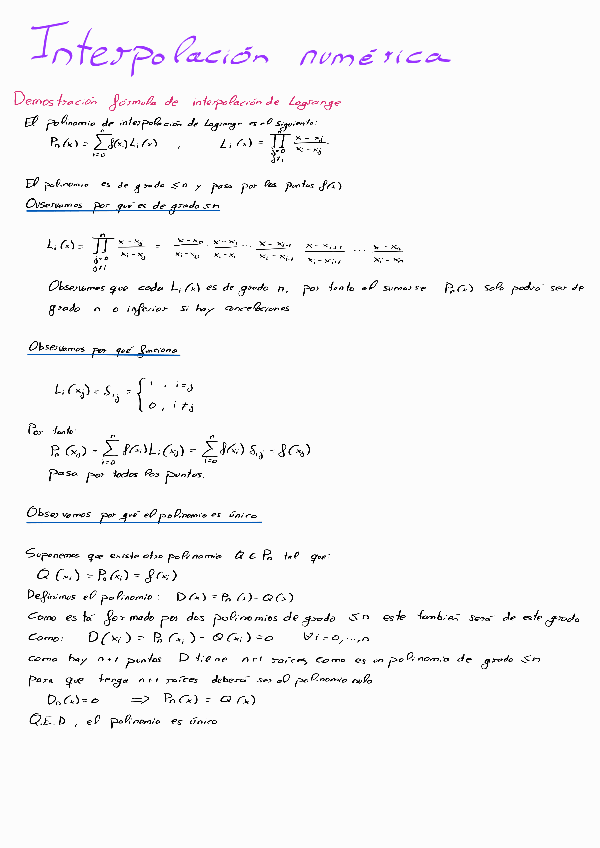 Interpolación numérica
Demostración fórmula de interpolación de Lagrange
El polinomio de interpolación de Lagrange es el siguiente:
Pₙ(x) = ∑_{i=0}^{n} f(xᵢ) Lᵢ(x) , Lᵢ(x) = ∏_{j=0, j≠i}^{n} (x - xⱼ)/(xᵢ - xⱼ).
El polinomio es de grado ≤n y pasa por los puntos f(xᵢ)
Observamos por qué es de grado ≤n
Lᵢ(x) = ∏_{j=0, j≠i}^{n} (x - xⱼ)/(xᵢ - xⱼ) = (x - x₀)/(xᵢ - x₀) · (x - x₁)/(xᵢ - x₁) ... (x - xᵢ₋₁)/(xᵢ - xᵢ₋₁) (x - xᵢ₊₁)/(xᵢ - xᵢ₊₁) ... (x - xₙ)/(xᵢ - xₙ)
Observamos que cada Lᵢ(x) es de grado n, por tanto al sumarse Pₙ(x) solo podrá ser de
grado n o inferior si hay cancelaciones
Observamos por qué funciona
Lᵢ(xⱼ) = δᵢⱼ = { 1 , i=j
0 , i≠j
Por tanto:
Pₙ(xⱼ) = ∑_{i=0}^{n} f(xᵢ) Lᵢ(xⱼ) = ∑_{i=0}^{n} f(xᵢ) δᵢⱼ = f(xⱼ)
pasa por todos los puntos.
Observamos por qué el polinomio es único
Suponemos que existe otro polinomio Q ∈ Pₙ tal que:
Q(xᵢ) = Pₙ(xᵢ) = f(xᵢ)
Definimos el polinomio: D(x) = Pₙ(x) - Q(x)
Como está formado por dos polinomios de grado ≤n este también será de este grado
Como: D(xᵢ) = Pₙ(xᵢ) - Q(xᵢ) = 0 ∀i = 0,...,n
como hay n+1 puntos D tiene n+1 raíces, como es un polinomio de grado ≤n
para que tenga n+1 raíces deberá ser el polinomio nulo
Dₙ(x) = 0 ⟹ Pₙ(x) = Q(x)
Q.E.D, el polinomio es único